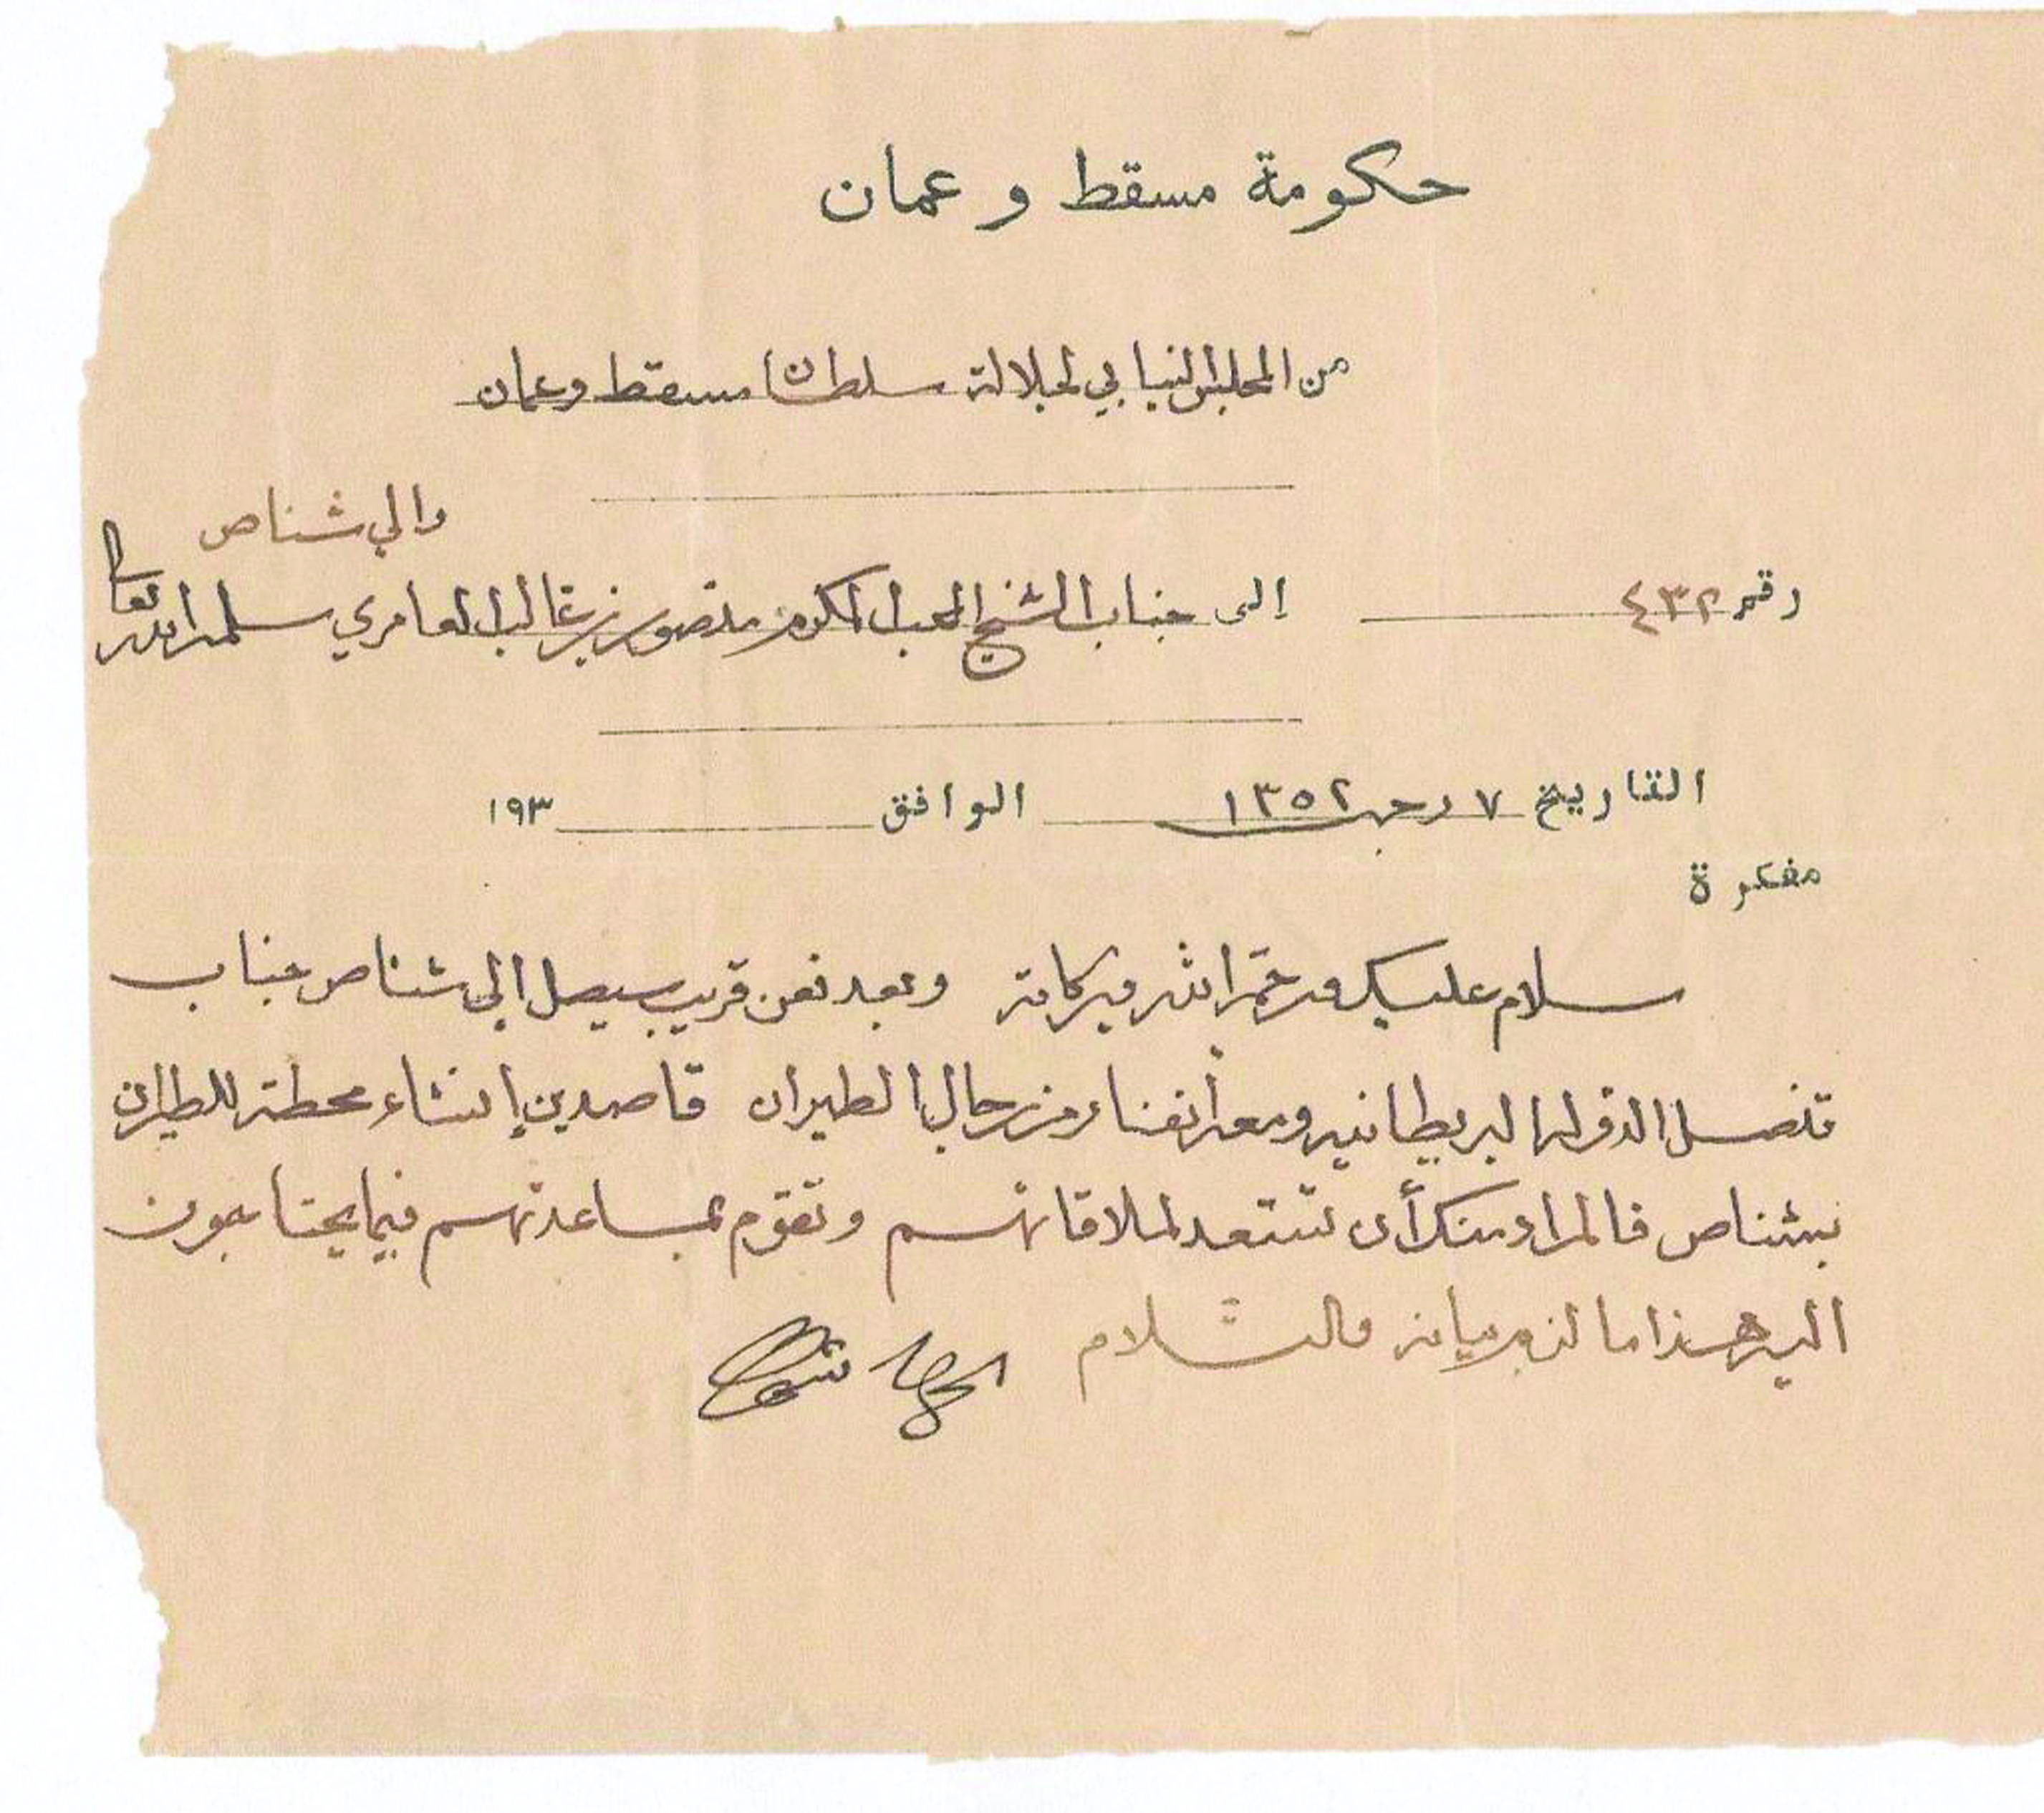 حكومة مسقط و عمان
من المجلس النيابي لجلالة سلطان مسقط وعمان
والي شناص
رقم ٤٣٢ إلى جناب الشيخ المحب المكرم منصور بن غالب العامري سلمه الله تعالى
التاريخ ٧ رجب ١٣٥٢ الموافق ١٩٣
مفكرة
سلام عليك ورحمة الله وبركاته وبعد فعن قريب سيصل إلى شناص جناب
قنصل الدولة البريطانيه ومعه أنفار من رجال الطيران قاصدين إنشاء محطة للطيران
بشناص فالمراد منك أن تستعد لملاقاتهم وتقوم بمساعدتهم فيما يحتاجون
اليه هذا ما لزم بيانه والسلام